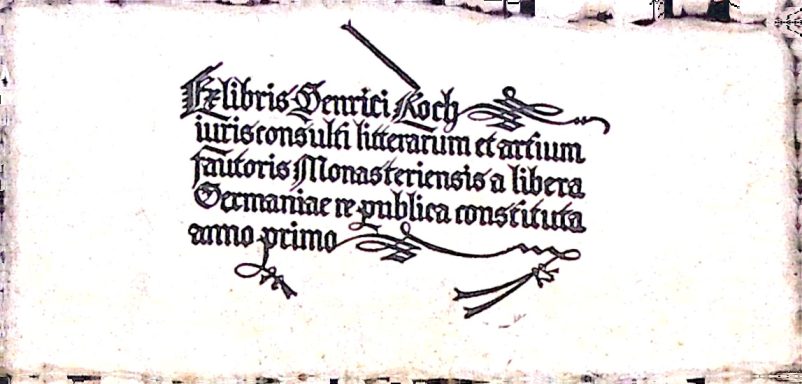 Exlibris Henrici Koch
iurisconsulti litterarum et artium
fautoris Monasteriensis a libera
Germaniae re publica constituta
anno primo